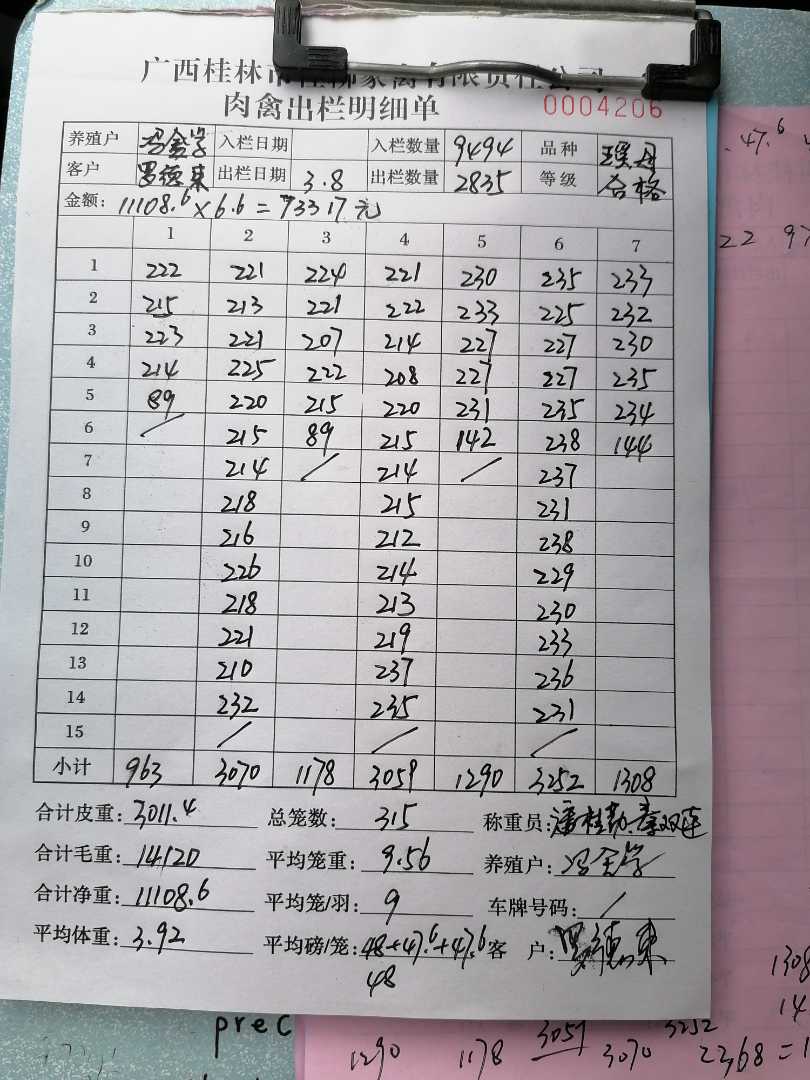 广西桂林市桂柳家禽有限责任公司
肉禽出栏明细单 0004206
养殖户 冯全学 入栏日期 入栏数量 9494 品种
客户 罗德来 出栏日期 3.8 出栏数量 2835 等级 合格
金额: 11108.6×6.6=73317元
1 2 3 4 5 6 7
1 222 221 224 221 230 235 233
2 215 213 221 222 233 225 232
3 223 221 207 214 227 227 230
4 214 225 222 208 227 227 235
5 89 220 215 220 231 235 234
6 / 215 89 215 142 238 144
7 214 / 214 / 237
8 218 215 231
9 216 212 238
10 226 214 229
11 218 213 230
12 221 219 233
13 210 237 236
14 232 235 231
15 / / /
小计 963 3070 1178 3059 1290 3252 1308
合计皮重: 3011.4 总笼数: 315 称重员:
合计毛重: 14120 平均笼重: 9.56 养殖户: 冯全学
合计净重: 11108.6 平均笼/羽: 9 车牌号码: /
平均体重: 3.92 平均磅/笼: 48+47.6+47.6 客 户: 罗德来
48
47.6
22 97
prec
1308
14
3059 3252
1290 1178 3070 2368=1